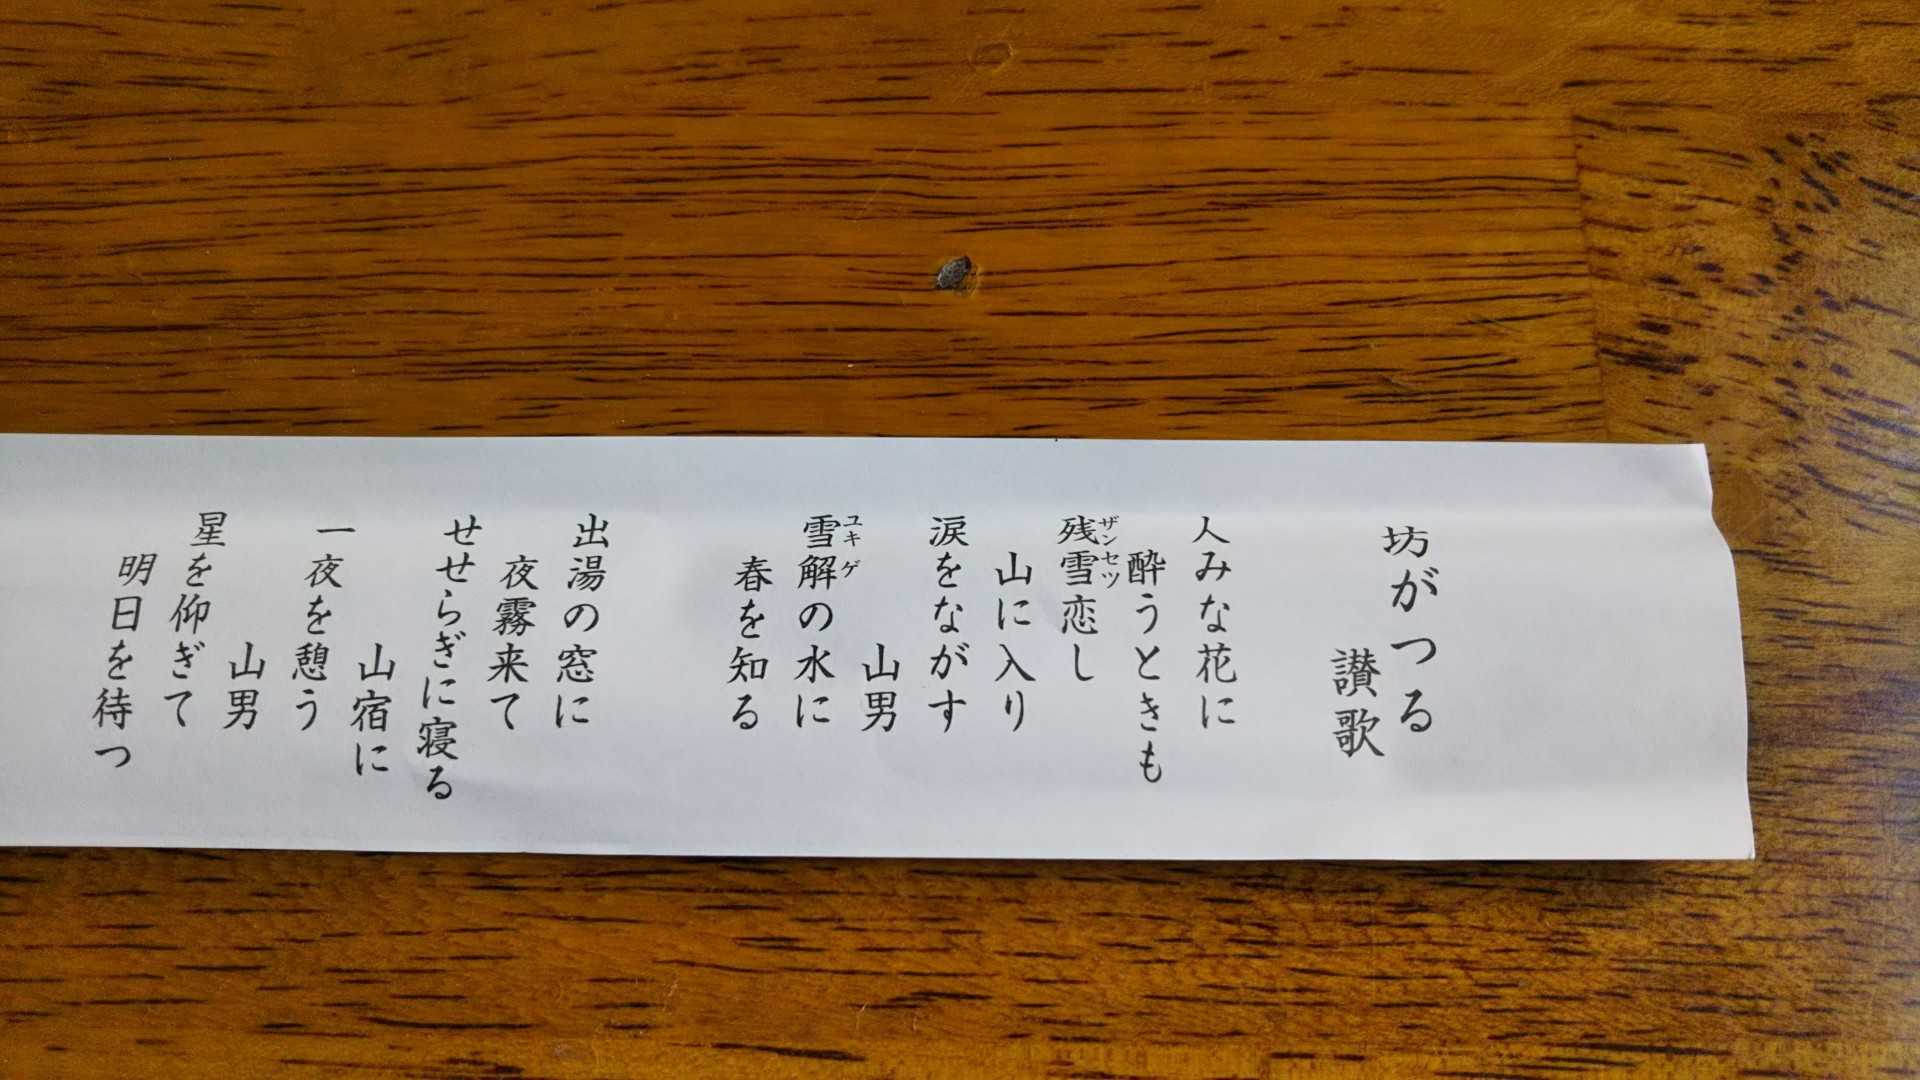 坊がつる
讃歌
人みな花に
酔うときも
残雪恋し
ザンセツ
山に入り
涙をながす
山男
雪解の水に
ユキゲ
春を知る
出湯の窓に
夜霧来て
せせらぎに寝る
山宿に
一夜を憩う
山男
星を仰ぎて
明日を待つ